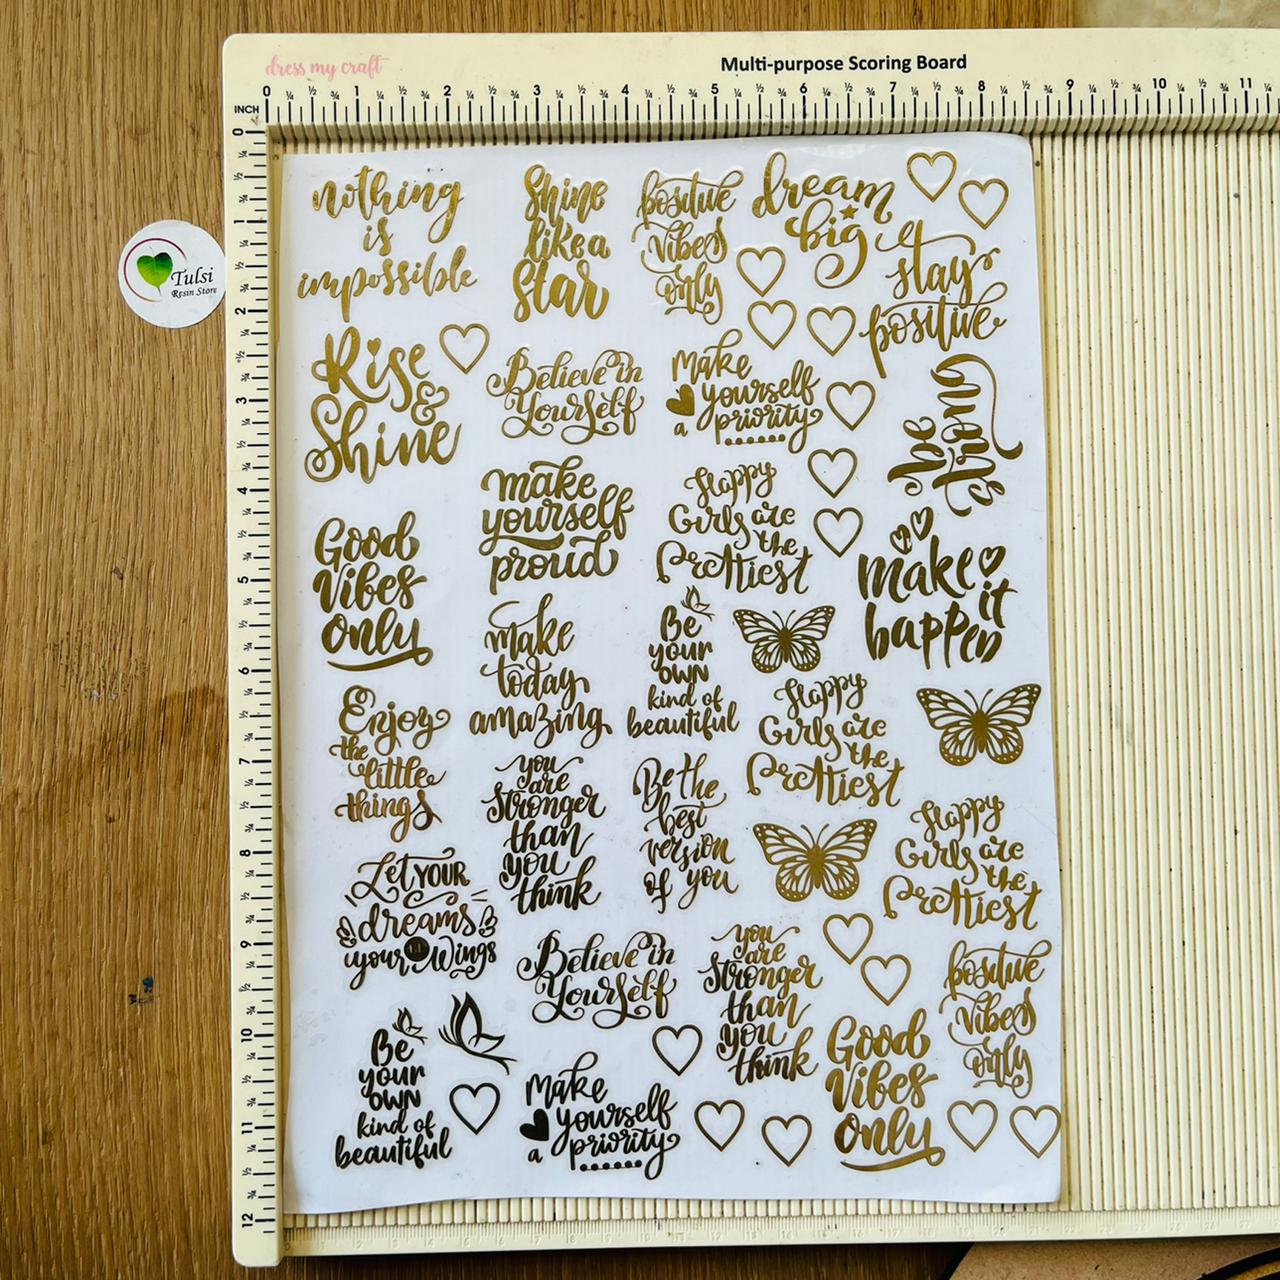 dress my craft
Multi-purpose Scoring Board
INCH
0 1 2 3 4 5 6 7 8 9 10 11
0 1 2 3 4 5 6 7 8 9 10 11 12
Tulsi
Resin Store
nothing
is
impossible
Shine
like a
Star
positive
vibes
only
dream
big
stay
positive
Rise
&
Shine
Believe in
Yourself
Make
yourself
a priority
be
strong
Good
Vibes
only
make
yourself
proud
Happy
Girls are
the
Prettiest
make
it
happen
make
today
amazing
Be
your
own
kind of
beautiful
Enjoy
the
little
things
you
are
stronger
than
you
think
Be the
best
version
of you
Happy
Girls are
the
Prettiest
Happy
Girls are
the
Prettiest
Let your
dreams
your Wings
Believe in
Yourself
you
are
stronger
than
you
think
positive
vibes
only
Be
your
own
kind of
beautiful
Make
yourself
a priority
Good
Vibes
only